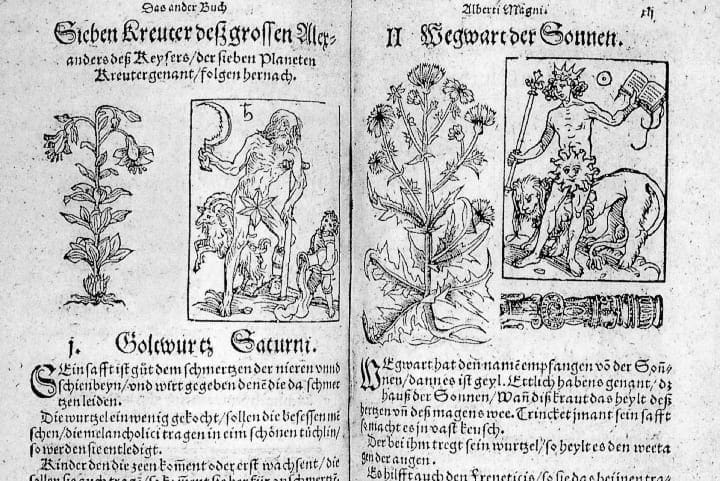 Das ander Buch
Sieben Kreuter deß grossen Alex-
anders deß Keysers/der sieben Planeten
Kreuter genant/folgen hernach.
♄
j. Goltwurtz Saturni.
SEin safft ist güt dem schmertzen der nieren vnnd
schienbeyn/vnd wirt gegeben denē die da schmer
tzen leiden.
Die wurtzel ein wenig gekocht/sollen die besessen mē
schen/die melancholici tragen in eim schönen tüchlin/
so werden sie entlediget.
Kinder den die zeen kom̄ent oder erst wachsent/die
Alberti Magni.
II Wegwart der Sonnen.
☉
WEgwart hat den namē empfangen võ der Soñ-
nen/dann es ist geyl. Ettlich habens genant/dz
hauß der Sonnen/Wañ diß kraut das heylt deß
hertzen vñ deß magens wee. Trincket jmant sein safft
so macht es jn vast keusch.
Der bei ihm tregt sein wurtzel/so heylt es den weeta
gen der augen.
Es hilfft auch den Freneticis/so sie das bei jnen tra-